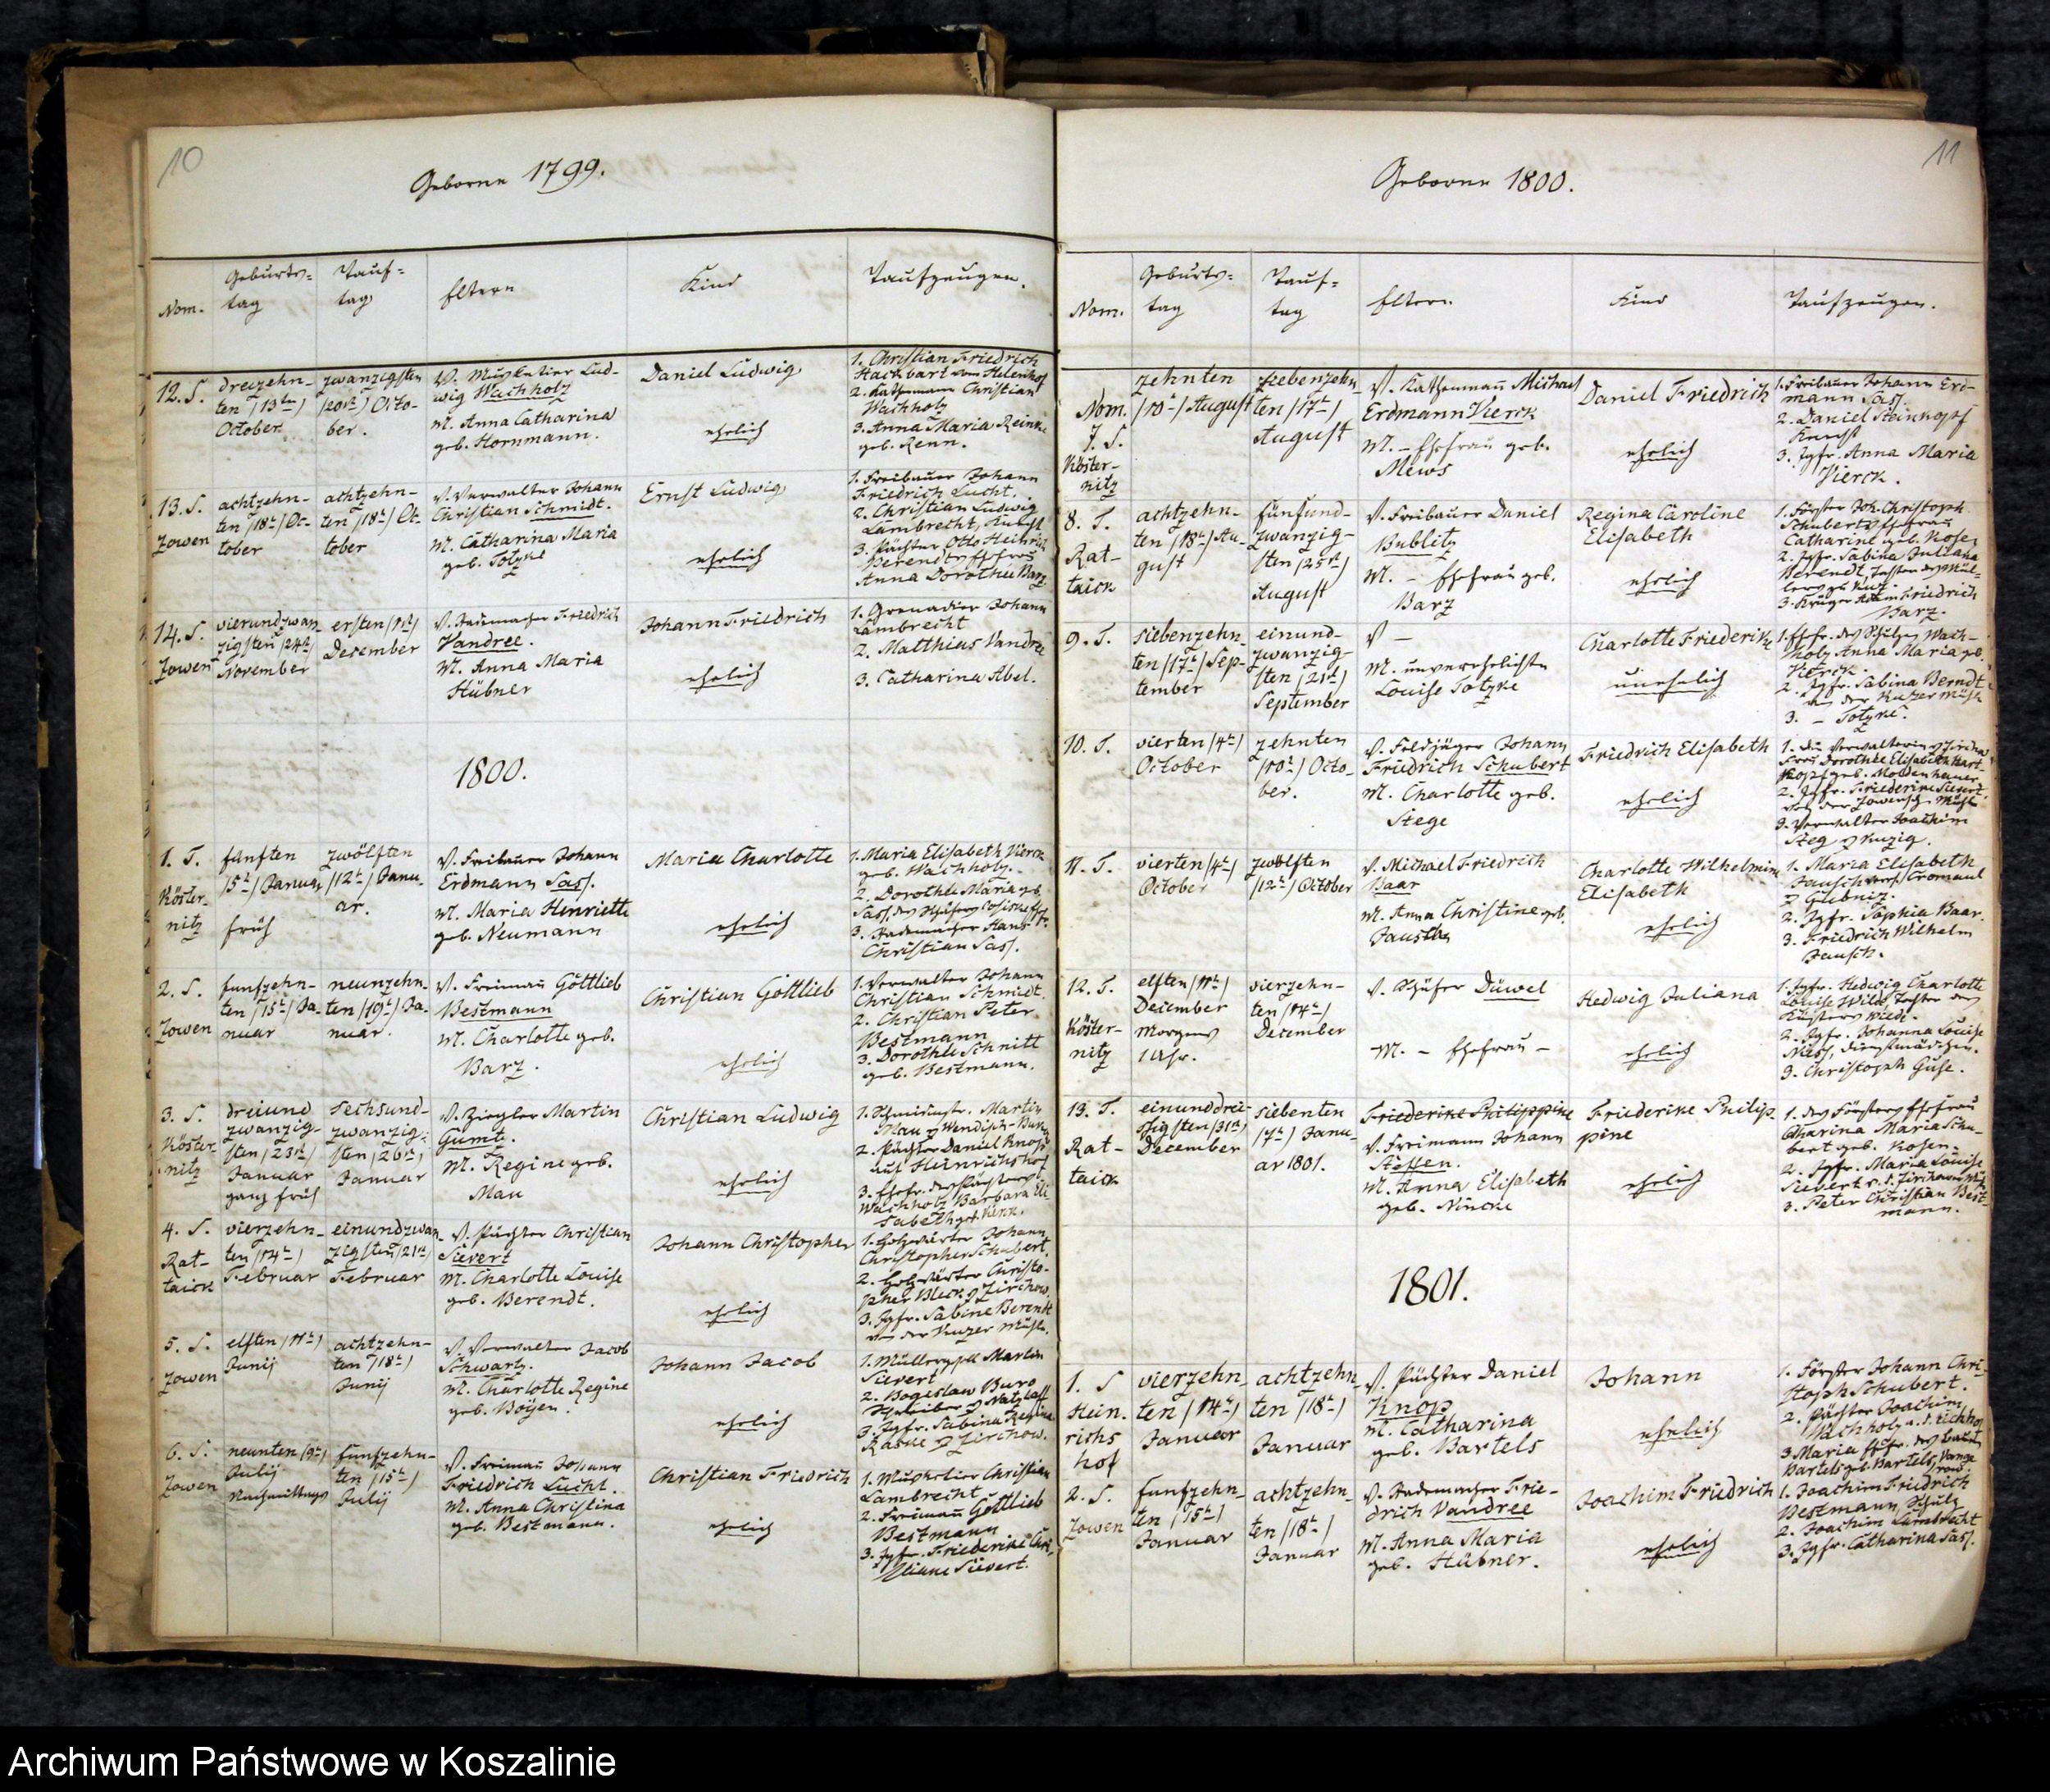 10
Geborne 1799.
Nom.
Geburts=
tag
Tauf=
tag
Eltern
Kind
Taufzeugen.
12. S.
dreizehn-
ten /13ten/
October
zwanzigsten
/20st/ Octo-
ber.
V. Musketier Lud-
wig Wachholz
M. Anna Catharina
geb. Hornmann.
Daniel Ludwig
ehelich
1. Christian Friedrich
Hackbart vom Helenhof
2. Kathenmann Christian
Wachholz
3. Anna Maria Reinke
geb. Renn.
13. S.
Zowen
achtzehn-
ten /18t/ Oc-
tober
achtzehn-
ten /18t/ Oc-
tober
V. Verwalter Johann
Christian Schmidt.
M. Catharina Maria
geb. Totzke
Ernst Ludwig
ehelich
1. Freibauer Johann
Friedrich Lucht.
2. Christian Ludwig
Lambrecht, Knecht
3. Pächter Otto Heinrich
Berendts Ehefrau
Anna Dorothee Barz.
14. S.
Zowen
vierundzwan-
zigsten /24st/
November
ersten /1st/
December
V. Rademacher Friedrich
Vandree.
M. Anna Maria
Hübner
Johann Friedrich
ehelich
1. Grenadier Johann
Lambrecht
2. Matthias Vandree
3. Catharina Abel.
1800.
1. T.
Köster-
nitz
fünften
/5t/ Januar
früh
zwölften
/12t/ Janu-
ar.
V. Freibauer Johann
Erdmann Sass.
M. Maria Henriette
geb. Neumann
Maria Charlotte
ehelich
1. Maria Elisabeth Vierck
geb. Wachholz.
2. Dorothee Maria geb.
Sass, des Schäfers
3. Rademacher Hans
Christian Sass.
2. S.
Zowen
funfzehn-
ten /15t/ Ja-
nuar
neunzehn-
ten /19t/ Ja-
nuar.
V. Freimann Gottlieb
Bestmann
M. Charlotte geb.
Barz.
Christian Gottlieb
ehelich
1. Verwalter Johann
Christian Schmidt.
2. Christian Peter
Bestmann
3. Dorothee Schnitt
geb. Bestmann.
3. S.
Köster-
nitz
dreiund
zwanzig-
sten /23st/
Januar
ganz früh
sechsund-
zwanzig-
sten /26st/
Januar
V. Ziegler Martin
Gumtz.
M. Regine geb.
Mau
Christian Ludwig
ehelich
1. Schneidermstr. Martin
Mau Wendisch-
2. Pächter Daniel Knop
auf Heinrichshof
3. Ehefr. des Pächters
Wachholz Barbara Eli-
sabeth geb. Renn.
4. S.
Rat-
taick
vierzehn-
ten /14t/
Februar
einundzwan-
zigsten /21st/
Februar
V. Pächter Christian
Sievert
M. Charlotte Louise
geb. Berendt.
Johann Christopher
ehelich
1. Holzwärter Johann
Christopher Schubert.
2. Holzwärter Christo-
pher Bleck Zirchow.
3. Jgfr. Sabine Berendt
von der Kuzer Mühle.
5. S.
Zowen
elften /11t/
Junij
achtzehn-
ten /18t/
Junij
V. Verwalter Jacob
Schwartz.
M. Charlotte Regine
geb. Böyen.
Johann Jacob
ehelich
1. Müllergesell Martin
Sievert
2. Bogeslaw Buro
Schreiber Natzlaff
3. Jgfr. Sabina Regine
Raske Zirchow.
6. S.
Zowen
neunten /9t/
Julij
Nachmittags
funfzehn-
ten /15t/
Julij
V. Freimann Johann
Friedrich Lucht.
M. Anna Christina
geb. Bestmann.
Christian Friedrich
ehelich
1. Musketier Christian
Lambrecht
2. Freimann Gottlieb
Bestmann
3. Jgfr. Friederike Chri-
stiane Sievert.
11
Geborne 1800.
Nom.
Geburts=
tag
Tauf=
tag
Eltern
Kind
Taufzeugen.
Nom.
7. S.
Köster-
nitz
zehnten
/10t/ August
siebenzehn-
ten /17t/
August
V. Kathenmann Michael
Erdmann Vierck
M. - Ehefrau geb.
Mews
Daniel Friedrich
ehelich
1. Freibauer Johann Erd-
mann Sass.
2. Daniel Steinkopf
Knecht
3. Jgfr. Anna Maria
Vierck.
8. T.
Rat-
taick
achtzehn-
ten /18t/ Au-
gust
fünfund-
zwanzig-
sten /25st/
August
V. Freibauer Daniel
Bublitz
M. - Ehefrau geb.
Barz
Regina Caroline
Elisabeth
ehelich
1. Förster Joh. Christoph
Schuberts Ehefrau
Catharine geb. Kosen
2. Jgfr. Sabina Juliana
Berendt, Tochter des Mül-
lers
3. Krüger Adam Friedrich
Barz.
9. T.
siebenzehn-
ten /17t/ Sep-
tember
einund-
zwanzig-
sten /21st/
September
V -
M. unverehelichte
Louise Totzke
Charlotte Friederike
unehelich
1. Ehfr. des Schulzen Wach-
holz Anna Maria geb.
Vierck
2. Jgfr. Sabina Berndt
aus der Kutzer Mühle
3. - Totzke.
10. T.
vierten /4t/
October
zehnten
/10t/ Octo-
ber.
V. Feldjäger Johann
Friedrich Schubert
M. Charlotte geb.
Stege
Friedrich Elisabeth
ehelich
1. die Verwalterin Zirchow
Frau Dorothee Elisabeth Hart-
kopf geb. Moldenhauer
2. Jgfr. Friederike Sievert
von der Zowensch. Mühle
3. Verwalter Joachim
Steg Kuzig.
11. T.
vierten /4t/
October
zwölften
/12t/ October
V. Michael Friedrich
Baar
M. Anna Christine geb.
Jausch
Charlotte Wilhelmine
Elisabeth
ehelich
1. Maria Elisabeth
Jausch
Gubnitz.
2. Jgfr. Sophia Baar.
3. Friedrich Wilhelm
Jausch.
12. T.
Köster-
nitz
elften /11t/
December
Morgens
1 Uhr.
vierzehn-
ten /14t/
December
V. Schäfer Düwel
M. - Ehefrau -
Hedwig Juliana
ehelich
1. Jgfr. Hedwig Charlotte
Louise Wilde, Tochter des
Küsters Wilde.
2. Jgfr. Johanna Louise
Niess, Dienstmädchen.
3. Christoph Guse.
13. T.
Rat-
taick
einunddrei-
ssigsten /31st/
December
siebenten
/7t/ Janu-
ar 1801.
Friederike Philippine
V. Freimann Johann
Steffen.
M. Anna Elisabeth
geb. Nincke
Friederike Philip-
pine
ehelich
1. des Försters Ehefrau
Catharina Maria Schu-
bert geb. Kosen.
2. Jgfr. Maria Louise
Sievert v. d. Zirchower Mühle
3. Peter Christian Best-
mann.
1801.
1. S
Hein-
richs
hof
vierzehn-
ten /14t/
Januar
achtzehn-
ten /18t/
Januar
V. Pächter Daniel
Knop
M. Catharina
geb. Bartels
Johann
ehelich
1. Förster Johann Chri-
stoph Schubert.
2. Pächter Joachim
Wachholz a. d. Eichhof
3. Maria Ehfr. des Bauern
Bartels geb. Bartels, Vange
row.
2. S.
Zowen
funfzehn-
ten /15t/
Januar
achtzehn-
ten /18t/
Januar
V. Rademacher Frie-
drich Vandree
M. Anna Maria
geb. Hübner.
Joachim Friedrich
ehelich
1. Joachim Friedrich
Bestmann, Schulz
2. Joachim Lambrecht
3. Jgfr. Catharina Sass.
Archiwum Państwowe w Koszalinie